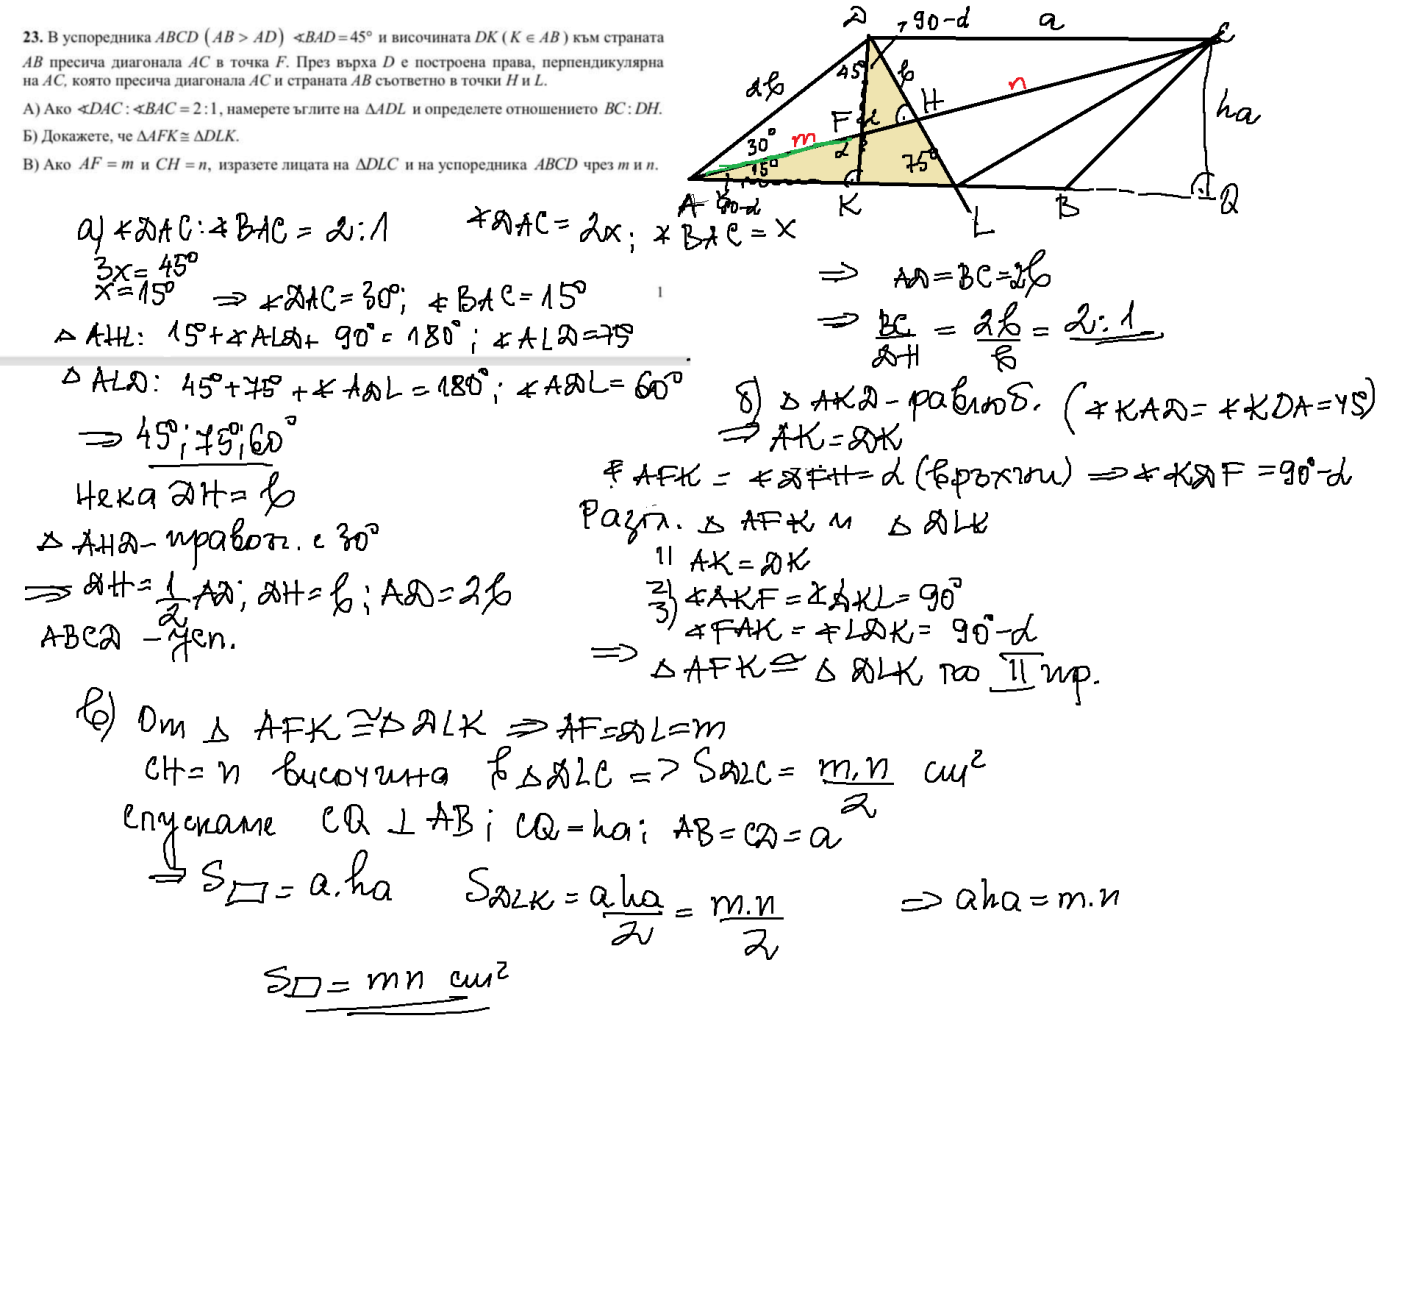 23. В успоредника ABCD (AB > AD) ∢BAD = 45° и височината DK (K ∈ AB) към страната
AB пресича диагонала AC в точка F. През върха D е построена права, перпендикулярна
на AC, която пресича диагонала AC и страната AB съответно в точки H и L.
А) Ако ∢DAC : ∢BAC = 2:1, намерете ъглите на ΔADL и определете отношението BC : DH.
Б) Докажете, че ΔAFK ≅ ΔDLK.
В) Ако AF = m и CH = n, изразете лицата на ΔDLC и на успоредника ABCD чрез m и n.
1
D 90-α a C
2b 45° b n
F α H ha
30° m α
15° 75°
A 90-α K L B Q
а) ∢DAC:∢BAC = 2:1 ∢DAC = 2x; ∢BAC = x
3x = 45°
x = 15° ⇒ ∢DAC = 30°; ∢BAC = 15°
Δ AHL: 15° + ∢ALD + 90° = 180°; ∢ALD = 75
Δ ALD: 45° + 75° + ∢ADL = 180°; ∢ADL = 60°
⇒ 45°; 75°; 60°
Нека DH = b
Δ AHD - правоъг. с 30°
⇒ DH = 1/2 AD; DH = b; AD = 2b
ABCD - усп.
⇒ AD = BC = 2b
⇒ BC/DH = 2b/b = 2:1
б) Δ AKD - равноб. (∢KAD = ∢KDA = 45)
⇒ AK = DK
∢AFK = ∢DFH = α (връхни) ⇒ ∢KDF = 90° - α
Разгл. Δ AFK и Δ DLK
1) AK = DK
2) ∢AKF = ∢DKL = 90°
3) ∢FAK = ∢LDK = 90° - α
⇒ Δ AFK ≅ Δ DLK по II пр.
в) От Δ AFK ≅ Δ DLK ⇒ AF = DL = m
CH = n височина в Δ DLC => S DLC = m.n/2 cm²
Спускаме CQ ⊥ AB; CQ = ha; AB = CD = a
⇒ S▱ = a.ha S DLK = a ha/2 = m.n/2 ⇒ aha = m.n
S▱ = mn cm²